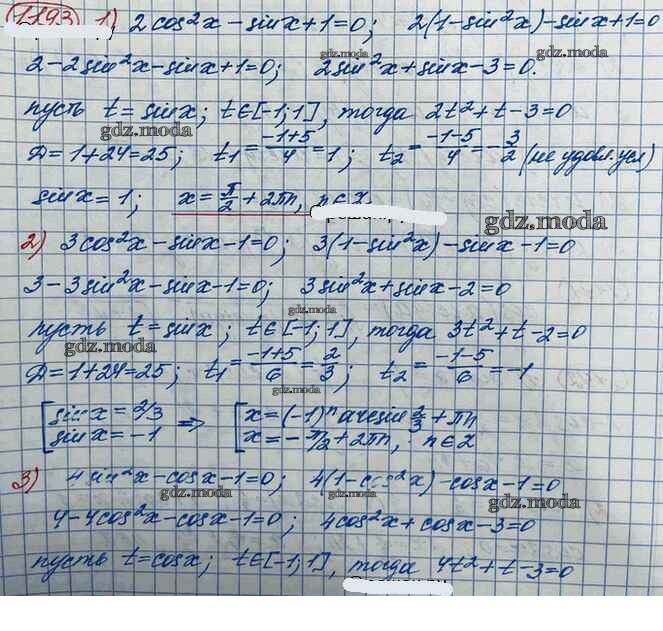 1193 1) 2cos²x - sinx + 1 = 0; 2(1 - sin²x) - sinx + 1 = 0
2 - 2sin²x - sinx + 1 = 0; 2sin²x + sinx - 3 = 0.
пусть t = sinx; t∈[-1;1], тогда 2t² + t - 3 = 0
gdz.moda
gdz.moda
Д = 1 + 24 = 25; t₁ = (-1+5)/4 = 1; t₂ = (-1-5)/4 = -3/2 (не удовл. усл)
sinx = 1; x = π/2 + 2πn, n∈Z
gdz.moda
2) 3cos²x - sinx - 1 = 0; 3(1 - sin²x) - sinx - 1 = 0
3 - 3sin²x - sinx - 1 = 0; 3sin²x + sinx - 2 = 0
gdz.moda
пусть t = sinx; t∈[-1;1], тогда 3t² + t - 2 = 0
gdz.moda
Д = 1 + 24 = 25; t₁ = (-1+5)/6 = 2/3; t₂ = (-1-5)/6 = -1
gdz.moda
[sinx = 2/3 => [x = (-1)ⁿ arcsin 2/3 + πn
[sinx = -1 [x = -π/2 + 2πn, n∈Z
3) 4sin²x - cosx - 1 = 0; 4(1 - cos²x) - cosx - 1 = 0
gdz.moda gdz.moda gdz.moda
4 - 4cos²x - cosx - 1 = 0; 4cos²x + cosx - 3 = 0
пусть t = cosx; t∈[-1;1], тогда 4t² + t - 3 = 0